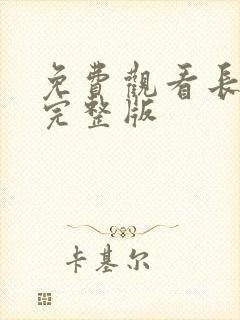 免費觀看長
完整版
卡基尔